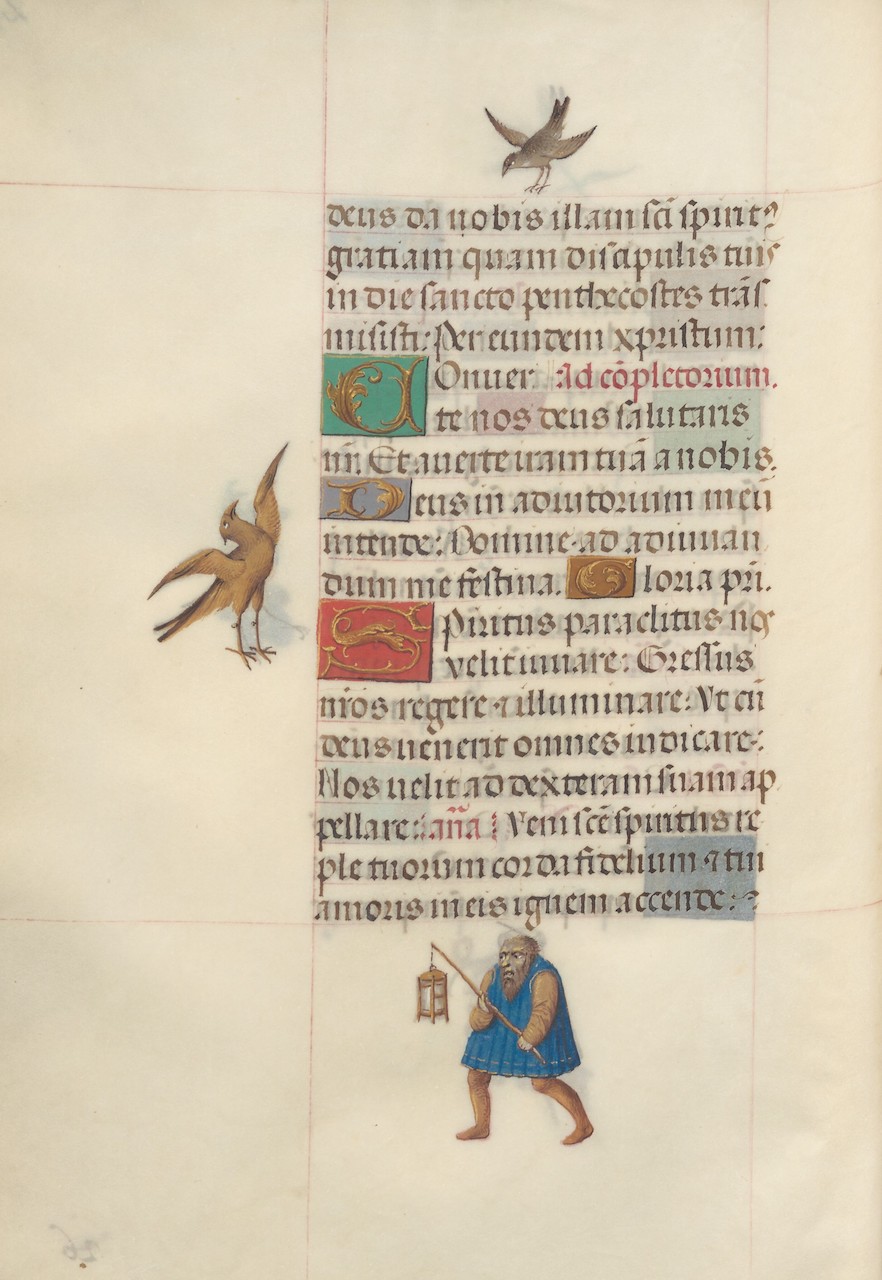 deus da nobis illam sc̄i spirit⁹
gratiam quam discipulis tuis
in die sancto penthecostes trās
misisti: Per eundem xpristum:
COnuer. Ad cōpletorium.
te nos deus salutaris
nr̄. Et auerte iram tuā a nobis.
Deus in adiutorium meū
intende: Domine ad adiuuan
dum me festina. Gloria pri.
Spiritus paraclitus nos
velit iuuare: Gressus
nr̄os regere ⁊ illuminare: Vt cū
deus uenerit omnes iudicare:
Nos uelit ad dexteram suam ap
pellare: an̄a Veni sc̄e spiritus re
ple tuorum corda fidelium ⁊ tui
amoris in eis ignem accende:
26